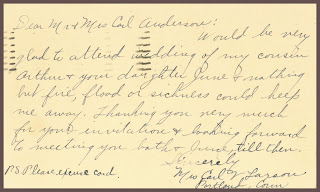 Dear Mr & Mrs Carl Anderson:
Would be very
glad to attend wedding of my cousin
Arthur & your daughter June & nothing
but fire, flood or sickness could keep
me away. Thanking you very much
for your invitation & looking forward
to meeting you both & June, till then.
Sincerely
Mrs Carl N Larson
P.S. Please excuse card.
Portland, Conn